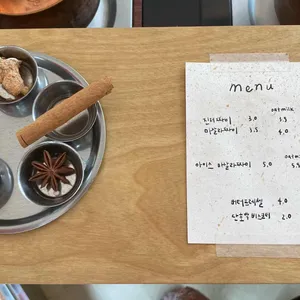 menu
oatmilk
진저짜이 3.0 3.5
마살라짜이 3.5 4.0
oatmi
아이스 마살라짜이 5.0 5.5
버터프레첼 4.0
단호박비스코티 2.0